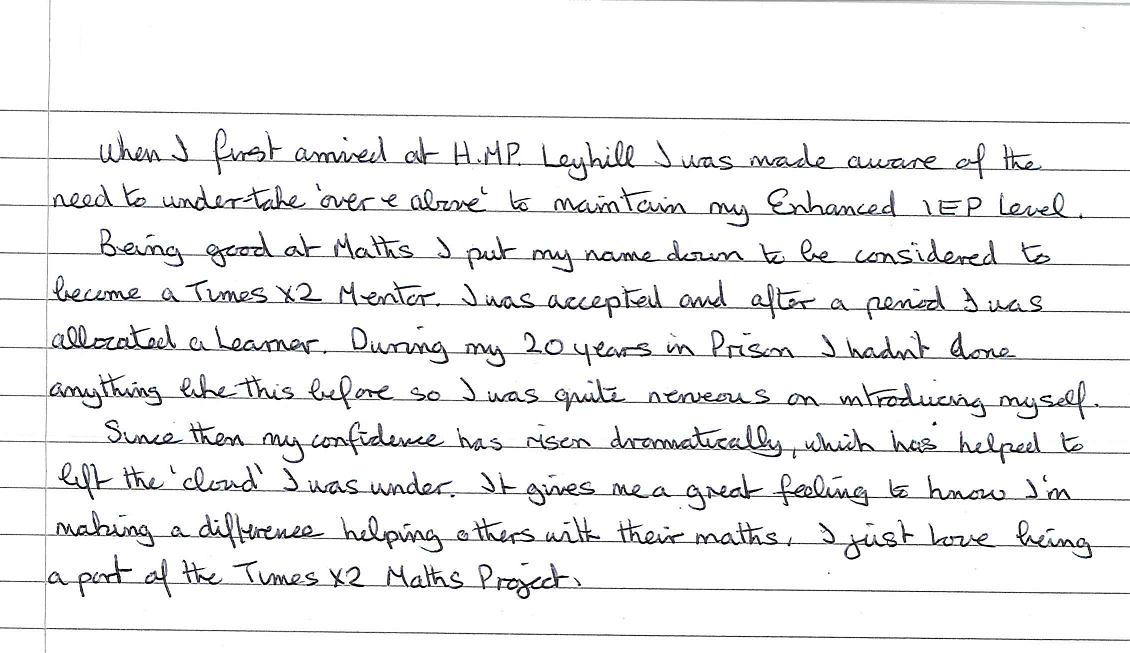 When I first arrived at H.M.P. Leyhill I was made aware of the
need to under-take 'over & above' to maintain my Enhanced IEP Level.
Being good at Maths I put my name down to be considered to
become a Times X2 Mentor. I was accepted and after a period I was
allocated a Learner. During my 20 years in Prison I hadn't done
anything like this before so I was quite nerveous on introducing myself.
Since then my confidence has risen dramatically, which has helped to
lift the 'cloud' I was under. It gives me a great feeling to know I'm
making a difference helping others with their maths, I just Love being
a part of the Times X2 Maths Project.